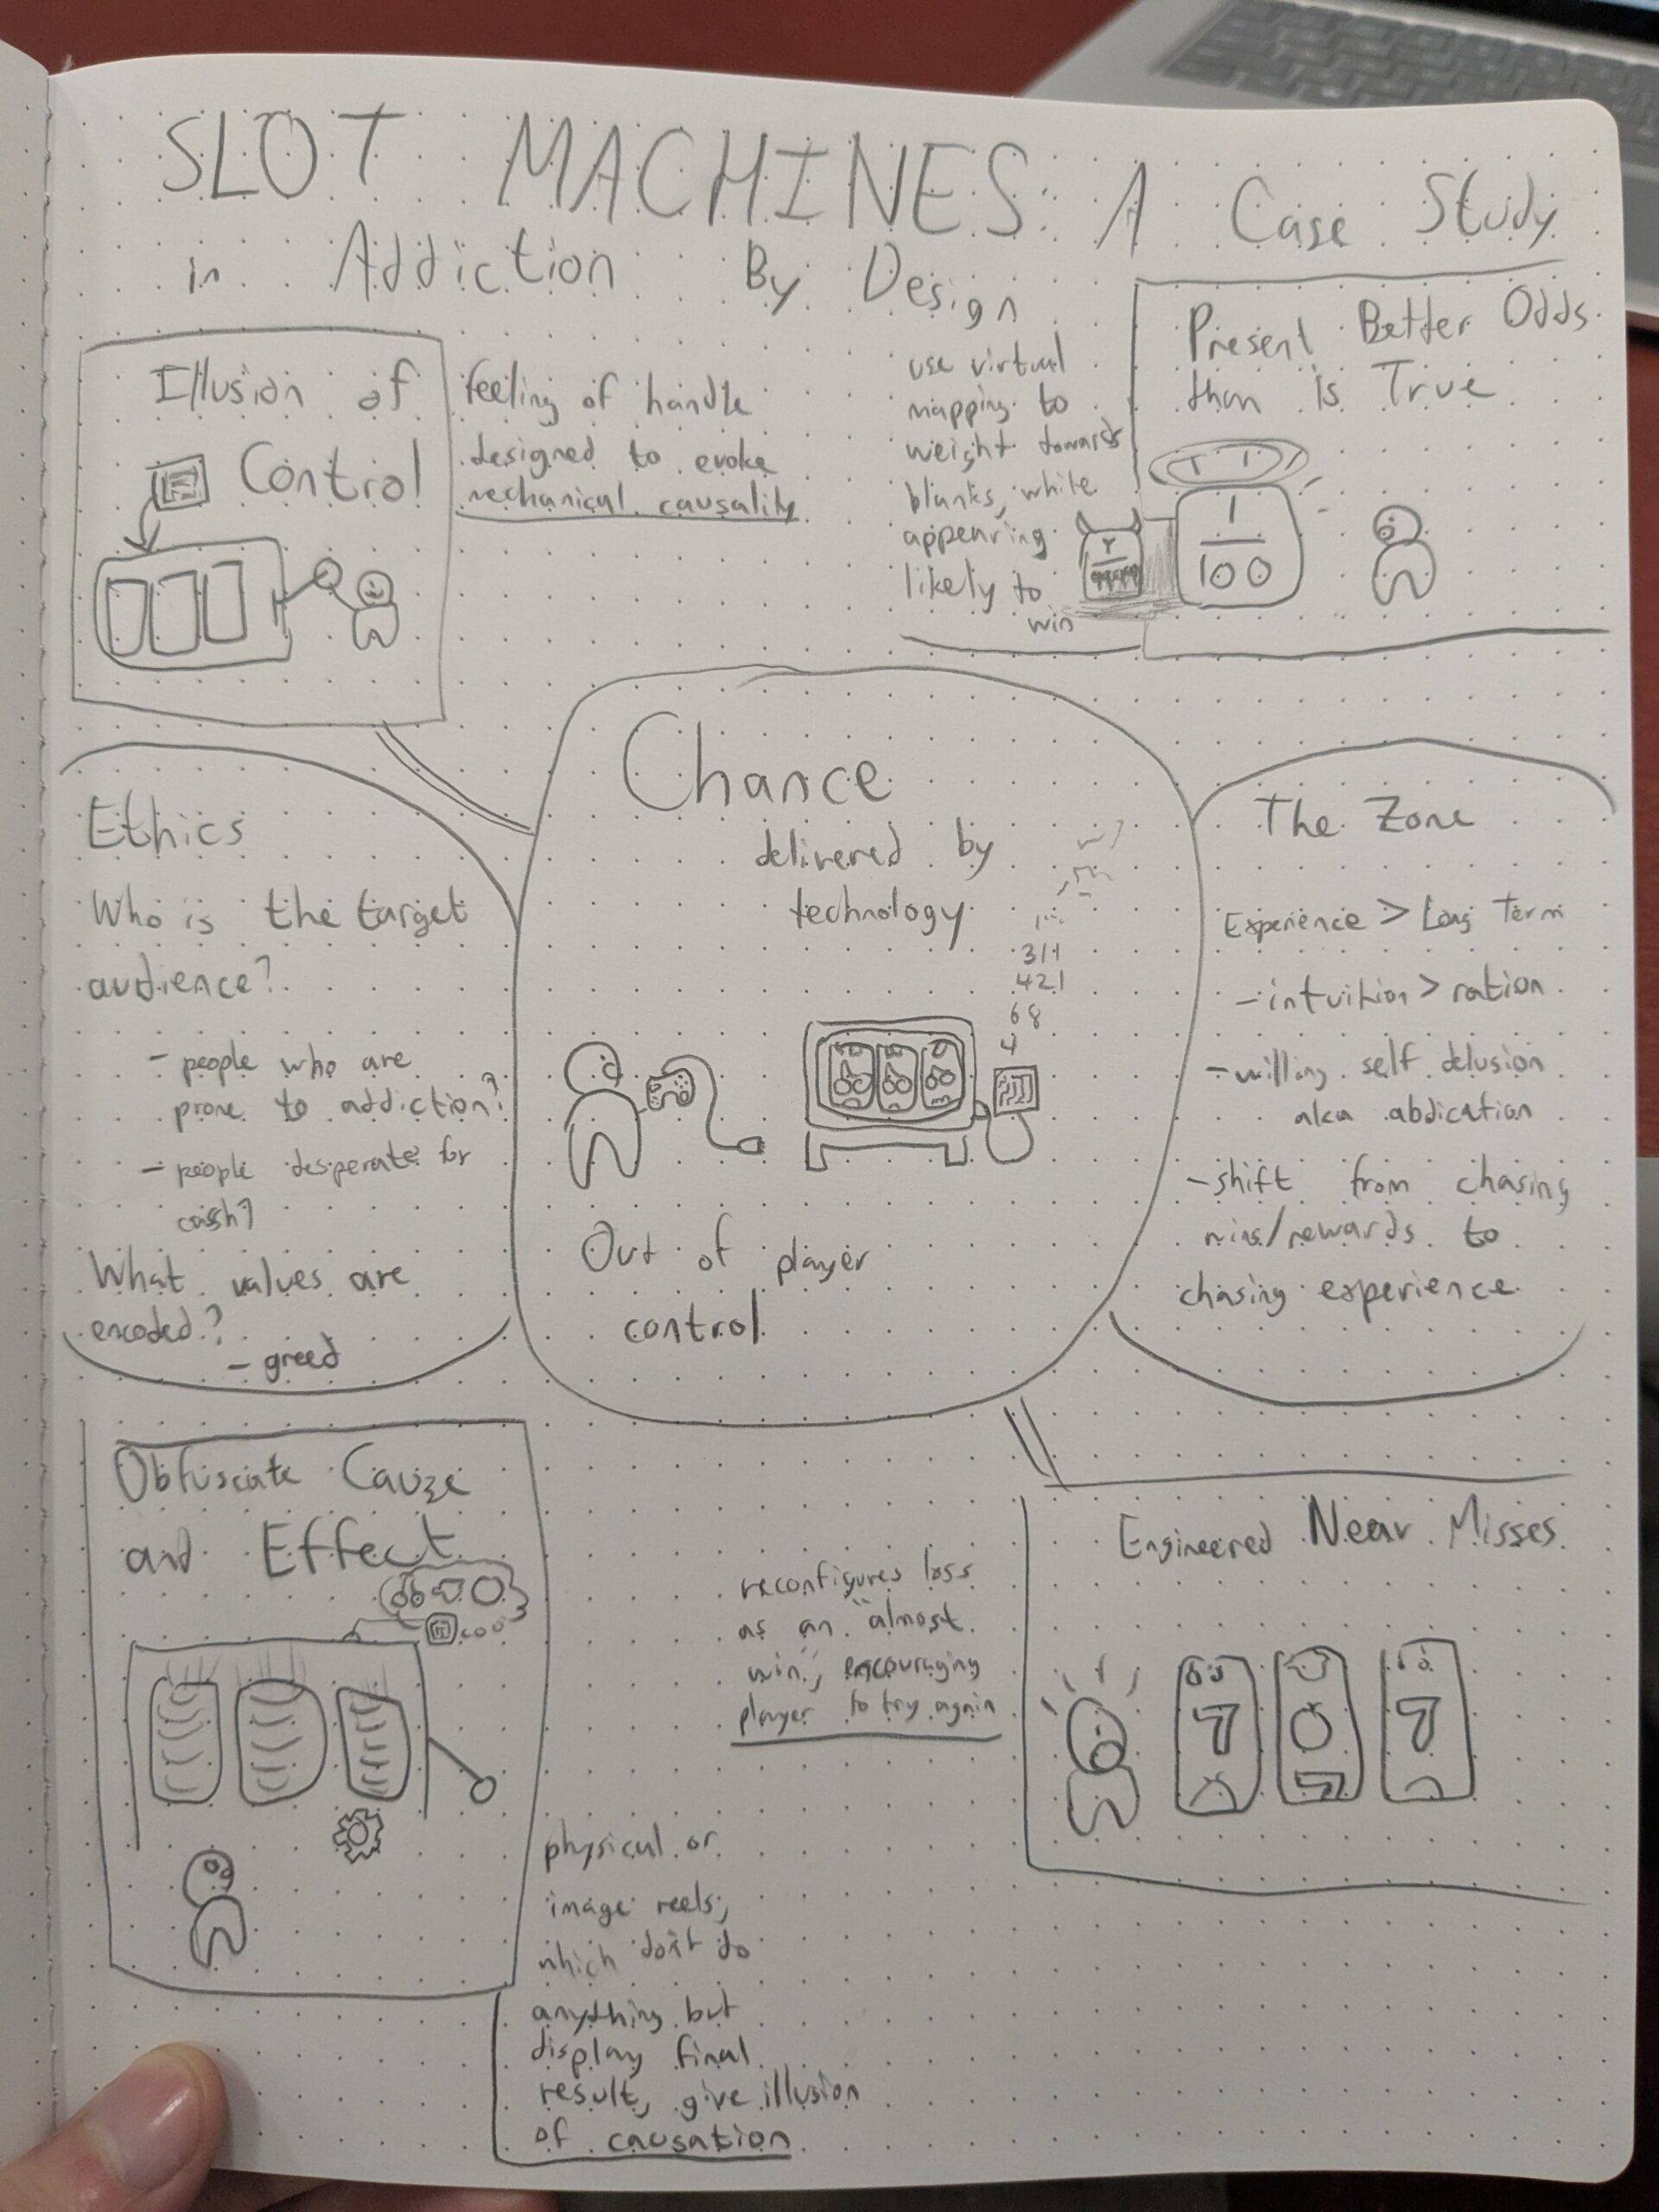 SLOT MACHINES: A Case Study
in Addiction By Design
Illusion of
Control
feeling of handle
designed to evoke
mechanical causality
use virtual
mapping to
weight towards
blanks, while
appearing
likely to
win
Present Better Odds
than is True
1
100
Ethics
Who is the target
audience?
- people who are
prone to addiction?
- people desperate for
cash?
What values are
encoded?
- greed
Chance
delivered by
technology
314
421
68
4
Out of player
control
The Zone
Experience > Long Term
- intuition > ration
- willing self delusion
aka abdication
- shift from chasing
wins/rewards to
chasing experience
Obfuscate Cause
and Effect
physical or
image reels,
which don't do
anything but
display final
result, give illusion
of causation
reconfigures loss
as an "almost
win", encouraging
player to try again
Engineered Near Misses
7
7